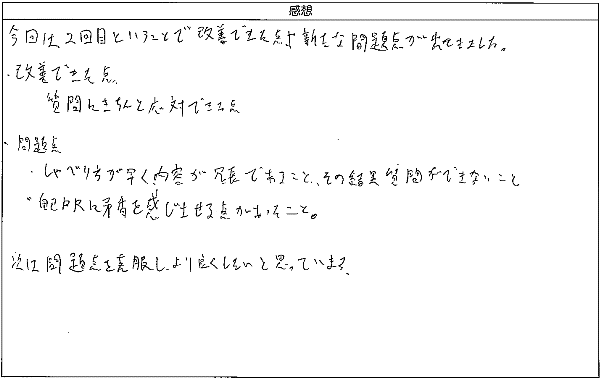 感想
今回は2回目ということで改善できた点や新たな問題点が出てきました。
・改善できた点
質問にきちんと応対できた点
・問題点
・しゃべり方が早く、内容が冗長であること、その結果質問ができないこと
・自己PRに矛盾を感じさせる点があったこと。
次は問題点を克服し、より良くしたいと思っています。